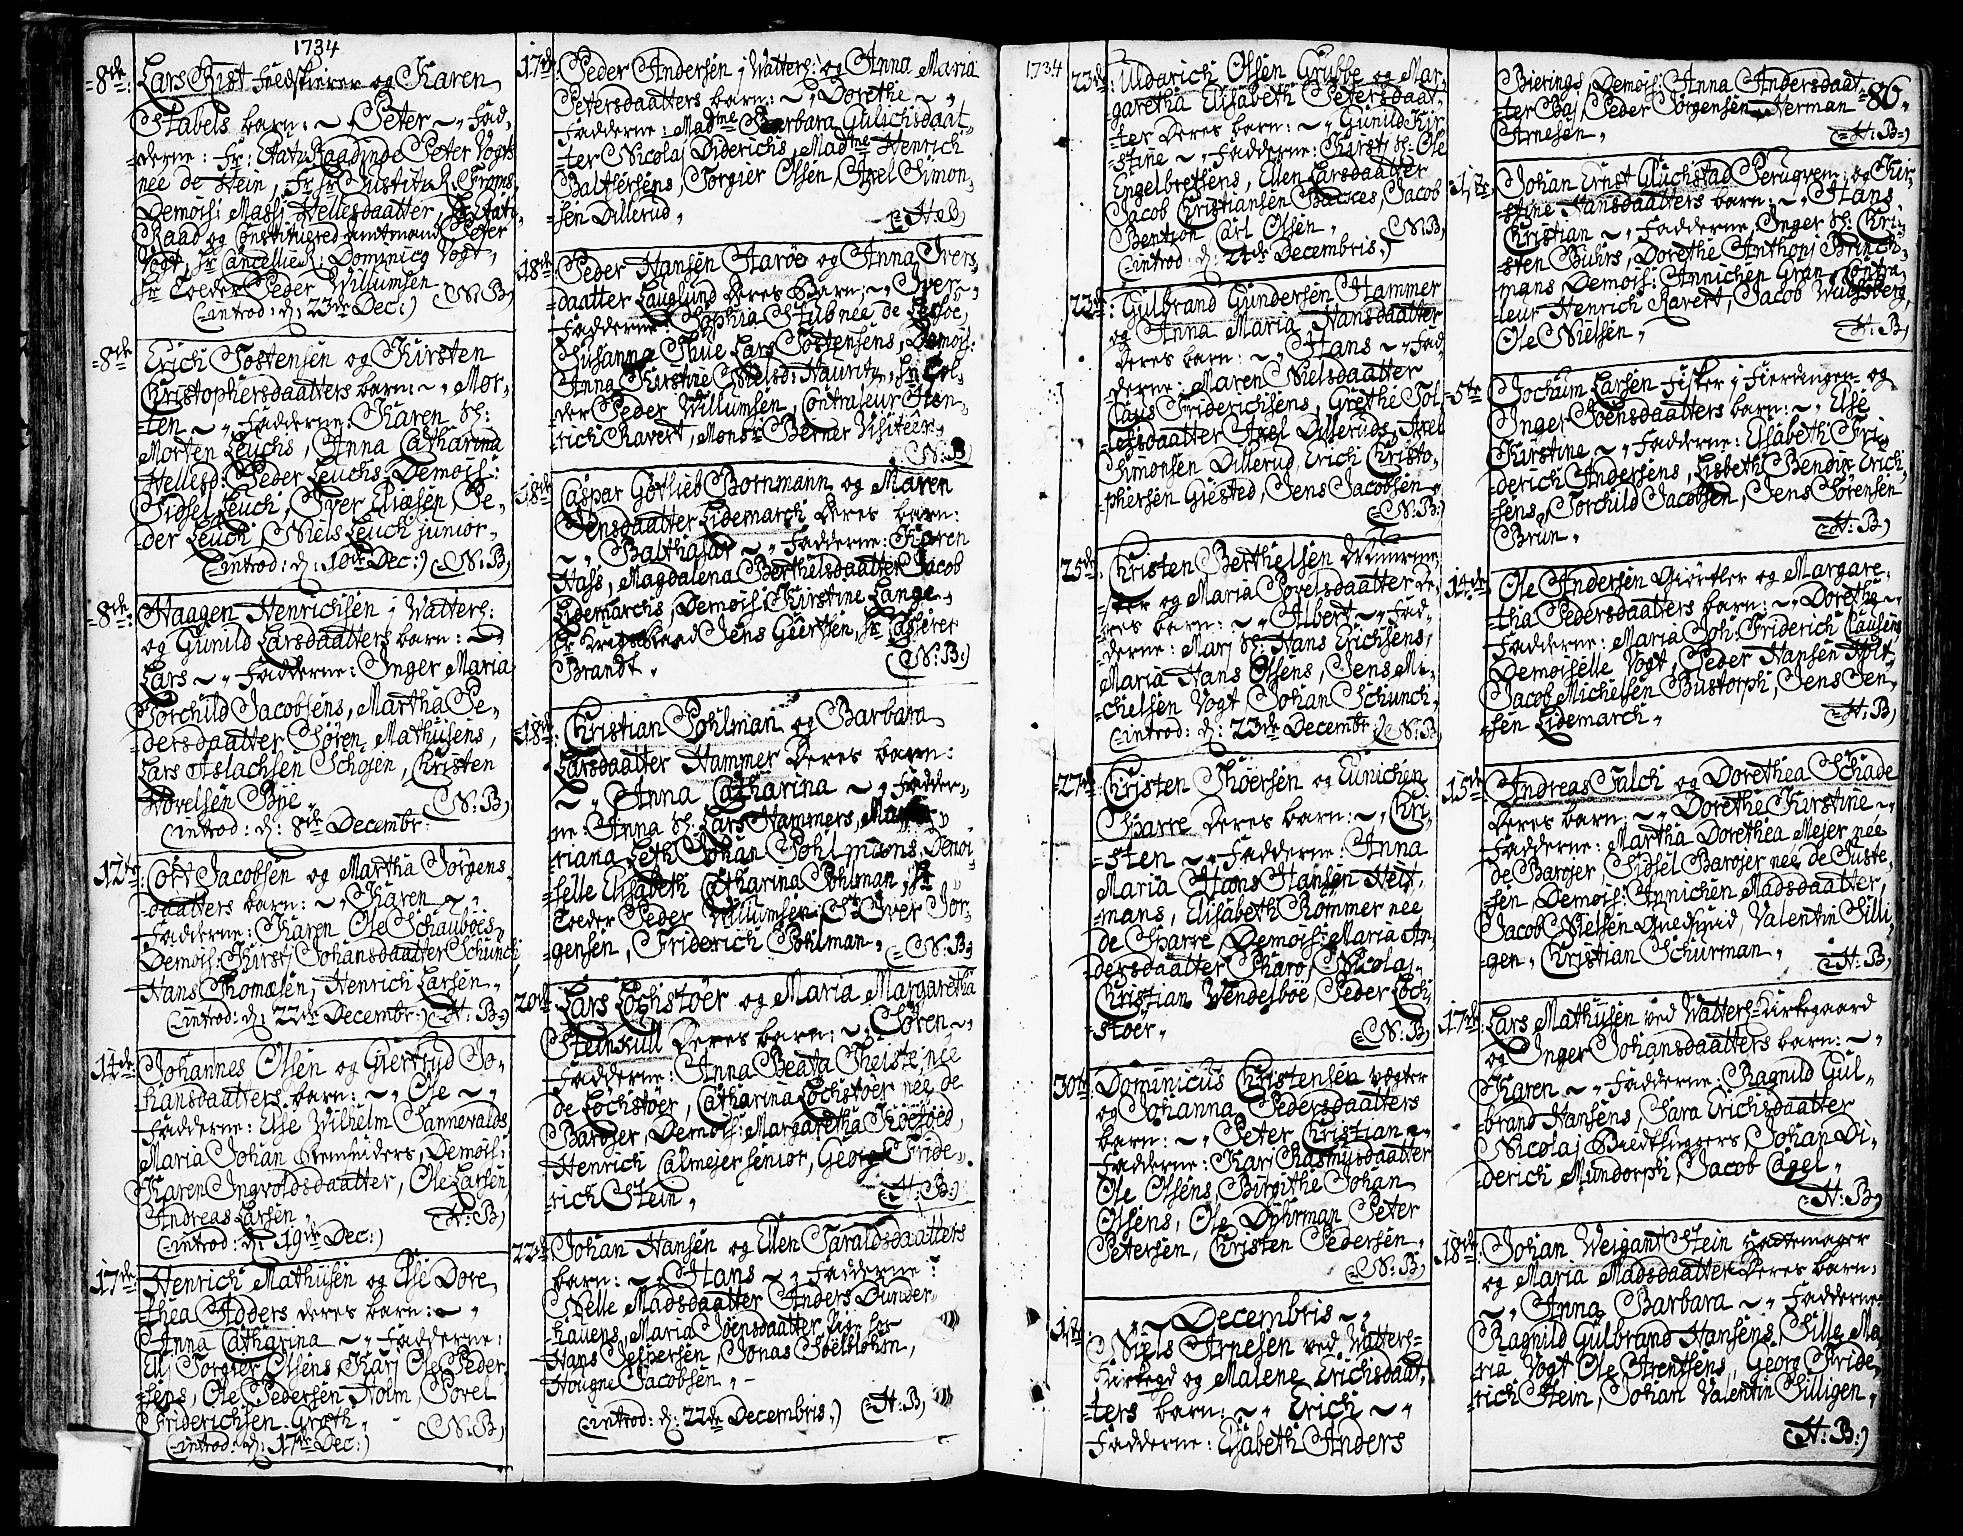 1734
8de: Lars Bist Feedskierer og Karen
Stabels barn: ~ Peter ~ Fad,
derne: Fr: Etatz Raadinde Peter Vogts
nee de Stein, Fr: Justitz R. Froms,
Demois: Massi Hellesdaatter, Hr Etatz
Raad og Constituered amtmand Peter
Vogt, Hr Cancellie R: Dominico Vogt,
Sr Peder Willumsen.
(introd: d: 23de Dec:) (N:B)
8de Erich Tostensen og Kirsten
Christophersdaatters barn: ~ Mor,
ten ~ Fadderne: Karen Sl:
Morten Leuchs, Anna Catharina
Hellesd: Peder Leuchs, Demois:
Sidsel Leuch, Iver Eliæsen, Pe,
der Leuch, Niels Leuch junior,
(introd: d: 10de Dec:) (N:B)
8de: Haagen Henrichsen i Watters:
og Gunild Larsdaatters barn: ~
Lars ~ Fadderne: Inger Maria
Torchild Jacobsens, Martha Pe,
dersdaatter Søren Mathisens,
Lars Aslachsen Schoien, Christen
Povelsen Bye. (N:B)
(introd: d: 8de Decembr:
12te: Cort Jacobsen og Martha Jørgens,
daatters barn: ~ Karen ~
Fadderne: Karen Ole Schaubøes,
Demois: Kirsti Johansdaatter Schunch
Hans Thomæsen, Henrich Larsen.
(introd: d: 22de Decembr:) (H:B)
14de: Johannes Olsen og Giertrud Jo,
hansdaatters barn: ~ Ole ~
Fadderne: Else Wilhelm Sannevalds
Maria Johan Remsniders, Demois:
Karen Ingvoldsdaatter, Ole Larsen,
Andreas Larsen. (H:B)
(introd: d: 19de Dec:)
17de Henrich Mathisen og Else Dore,
thea Adders deres barn: ~
Anna Catharina ~ Fadderne:
Eli Torgier Olsens, Kari Ole Peder,
sens, Ole Pedersen Holm, Povel
Friderichsen Groth. (N:B)
(introd: d: 17de Dec:)
17de: Peder Andersen i Watters: og Anna Maria
Petersdaatters barn: ~ Dorethe ~
Fadderne: Madme Barbara Gulichsdaat,
ter Nicolai Diderichs, Madme Henrich
Baltzersens, Torgier Olsen, Axel Simon,
sen Dillerud. (H:B)
18de Peder Hansen Aarøe og Anna Ivers,
daatter Lauglund Deres Barn: ~ Iver ~
Fadderne: Sophia Stub nee de Leshøe,
Susanna Thue Lars Tostensens, Demois:
Anna Kirstine Nielsd: Hauritz, Hr Tol,
der Peder Willumsen, Contraleur Hen,
rich Ravert, Monsr Berner Visiteur.
(N:B)
18de Caspar Gotlieb Bornmann og Maren
Jensdaatter Lidemarch Deres barn:
~ Balthasar ~ Fadderne: Karen
Hass, Magdalena Berthelsdaatter Jacob
Lidemarchs, Demois: Kirstine Lange,
Hr Krigs Raad Jens Giertsen, Hr Casserer
Brandt. (N:B:)
18de Christian Pohlman og Barbara
Larsdaatter Hammer Deres barn:
~ Anna Catharina ~ Fadder,
ne: Anna Sl: Lars Hammers, Ma
riana Leth Johan Pohlmans, Demoi,
selle Elisabeth Catharina Pohlman, Hr
Toeder Peder Willumsen, Sr Iver Jør,
gensen, Friderich Pohlman. (N:B)
20de Lars Lochstøer og Maria Margaretha
Steinkull Deres barn: ~ Søren ~
Fadderne: Anna Beata Theiste nee
de Lochstøer, Catharina Lochstøer nee de
Baroier, Demois: Margaretha Kocsoed,
Henrich Calmejer senior, Georg Fride,
rich Stein. (H:B:)
22de Johan Hansen og Ellen Taraldsdaatters
barn: ~ Hans ~ Fadderne:
Nelle Madsdaatter Anders Dunder,
hauens, Maria Joensdaatter,
Hans Jespersen, Jonas Soelblohm,
Hougne Jacobsen.
(introd: d: 22de Decembris.) (H:B)
1734
23de: Uldarich Olsen Grubbe og Mar,
garetha Elisabeth Petersdaat,
ter Deres barn: ~ Gunild Kir,
stine ~ Fadderne: Kirsti Sl: Ole
Engelbretsens, Ellen Larsdaatter
Jacob Christiansen Backes, Jacob
Bention, Carl Olsen. (N:B)
(introd: d: 21de Decembris.)
23de: Gulbrand Gundersen Hammer
og Anna Maria Hansdaatter
Deres barn: ~ Hans ~ Fad,
derne: Maren Nielsdaatter
Claus Friderichsens, Grethe Tol,
lefsdaatter Axel Dilleruds, Axel
Simonsen Dillerud, Erich Christo,
phersen Giested, Jens Jacobsen.
(N:B:)
25de: Christen Berthelsen
og Maria Povelsdaatter De,
res barn: ~ Albert ~ Fad,
derne: Mari Sl: Hans Erichsens,
Maria Hans Olsens, Jens Mi,
chelsen Vogt, Johan Schunch.
(introd: d: 23de Decembr:) (N:B)
27de: Christen Thoersen og Eunichen
Sparre Deres barn: ~ Chri,
sten ~ Fadderne: Anna
Maria Hans Hansen Heit,
mans, Elisabeth Rommer nee
de Sparre, Demois: Maria An,
dersdaatter Pharo, Nicolai
Christian Wendelboe, Peder Loch,
stoer. (N:B)
30de: Dominicus Christensen vegter
og Johanna Pedersdaatters
barn: ~ Peter Christian ~
Fadderne: Kari Rasmusdaatter
Ole Olsens, Birgithe Johan
Olsens, Ole Dyhrman, Peter
Petersen, Christen Pedersen.
(N:B)
~ Decembris ~
1ste Niels Arnesen ved Watters,
Kirkegd og Malene Erichsdaat,
ters barn: ~ Erich ~
Fadderne: Elsabeth Anders
Bierings, Demois: Anna Andersdaat,
ter Baj, Peder Jørgensen, Herman
Arnesen. (H:B)
86.
1ste Johan Ernst Gluchstad Peruqvem: og Kir,
stine Hansdaatters barn: ~ Hans
Christian ~ Fadderne: Inger Sl: Chri,
sten Buhrs, Dorethe Anthoni Brinch,
mans, Demois: Annichen Gran, Contra,
leur Henrich Ravert, Jacob Wulfsberg,
Ole Nielsen. (H:B)
5te Jochum Larsen Fisker i Fierdingen og
Inger Joensdaatters barn: ~ Else
Kirstine ~ Fadderne: Elsabeth Fri,
derich Andersens, Lisbeth Bendix Erich,
sens, Torchild Jacobsen, Jens Sørensen
Brun. (H:B)
14de Ole Andersen Giørtler og Margare,
tha Pedersdaatters barn: ~ Dorethe ~
Fadderne: Maria Joh: Friderich Clausens,
Demoiselle Vogt, Peder Hansen Holt,
Jacob Michelsen Bustorph, Jens Jen,
sen Lidemarch. (H:B)
15de Andreas Falch og Dorethea Schade
Deres barn: ~ Dorethe Kirstine ~
Fadderne: Martha Dorethea Mejer nee
de Baroier, Sidsel Baroier nee de Juste,
sen, Demois: Annichen Madsdaatter,
Jacob Nielsen Qvedsvid, Valentin Silli,
gen, Christian Schurman. (H:B)
17de: Lars Mathisen ved Watters Kirkegaard
og Inger Johansdaatters barn: ~
Karen ~ Fadderne: Ragnild Gul,
brand Hansens, Sara Erichsdaatter
Nicolai Bredthuggers, Johan Di,
derich Mundorph, Jacob Cagel.
(H:B)
18de: Johan Weigant Stein Hattemager
og Maria Madsdaatter Deres barn:
~ Anna Barbara ~ Fadderne:
Ragnild Gulbrand Hansens, Sille Ma,
ria Vogt Ole Arentsens, Georg Fride,
rich Stein, Johan Valentin Silligen.
(H:B:)